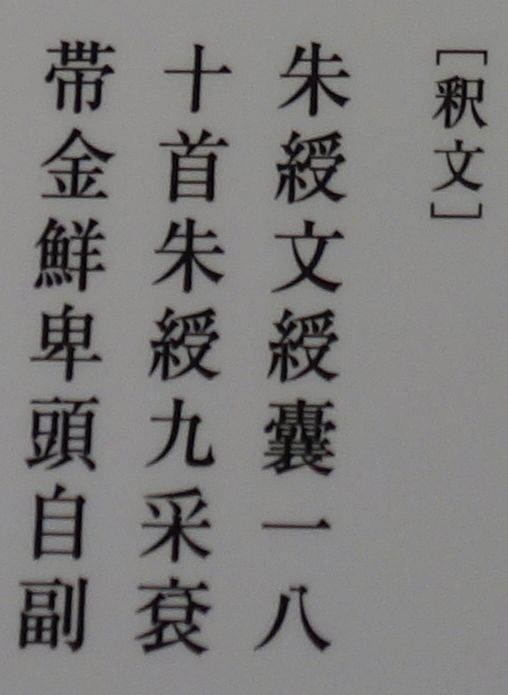 [釈文]
朱綬文綬囊一八
十首朱綬九采衰
帯金鮮卑頭自副